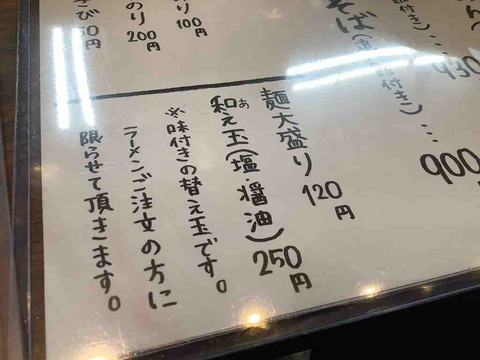 そば
付き)…
930
付き)…
900円
り 100円
のり 200円
び 50円
麺大盛り 120円
和え玉(塩・醤油) 250円
あ
※味付きの替え玉です。
ラーメンご注文の方に
限らせて頂きます。